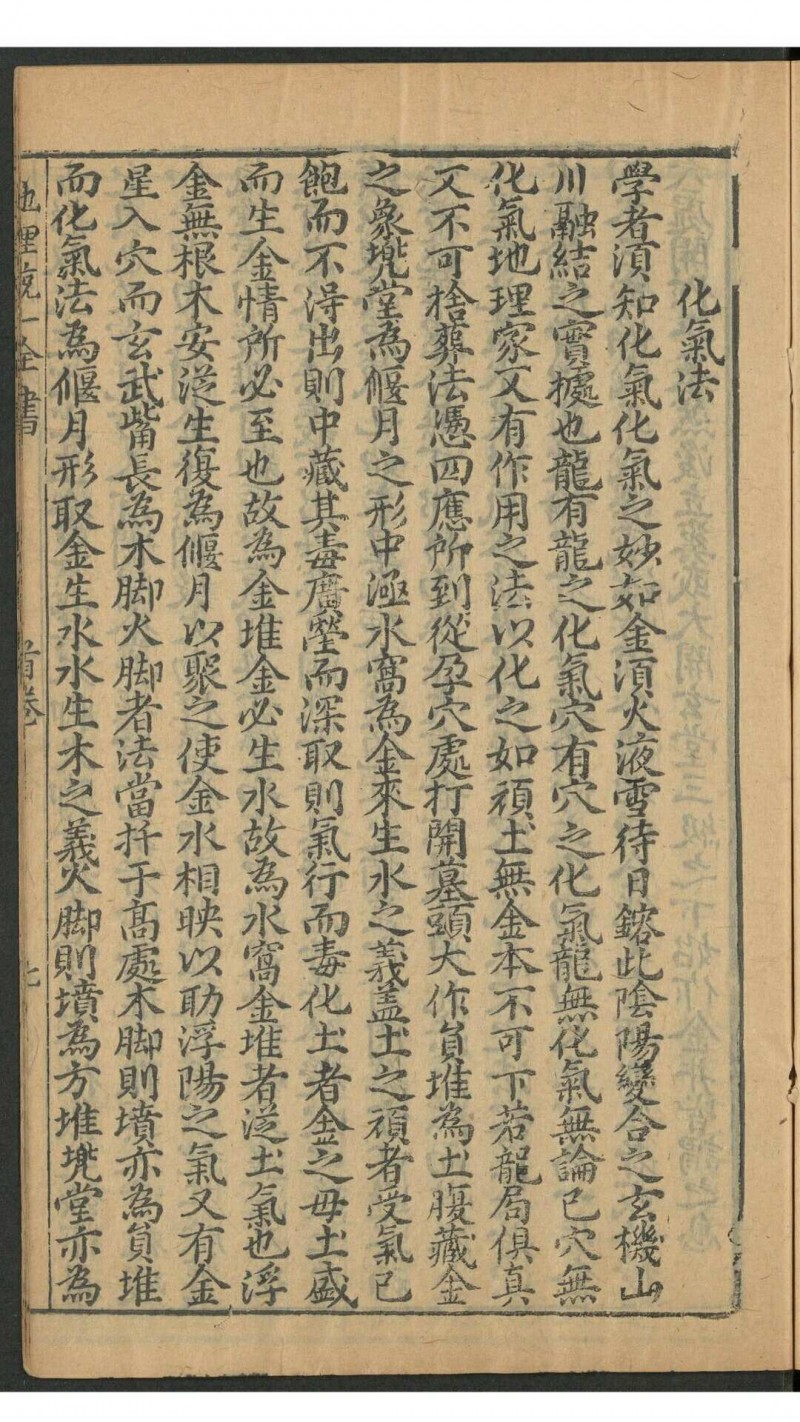 化氣法
學者湏知化氣化氣之妙如金湏火液雪待日鎔此陰陽變合之玄機山
川融結之實㨿也龍有龍之化氣穴有穴之化氣龍無化氣無論已穴無
化氣地理家又有作用之法以化之如頑土無金本不可下若龍局俱真
又不可捨葬法憑四應所到從孕穴處打開墓頭大作員堆為土腹藏金
之象㙜堂為偃月之形中極水窩為金來生水之義盖土之頑者受氣已
飽而不得出則中藏其毒廣瑩而深取則氣行而毒化土者金之母土盛
而生金情所必至也故為金堆金必生水故為水窩金堆者從土氣也浮
金無根木安從生復為偃月以聚之使金水相映以助浮陽之氣又有金
星入穴而玄武嘴長為木脚火脚者法當扦于高處木脚則墳亦為員堆
而化氣法為偃月形取金生水水生木之義火脚則墳為方堆㙜堂亦為
地理統一全書
首卷
七